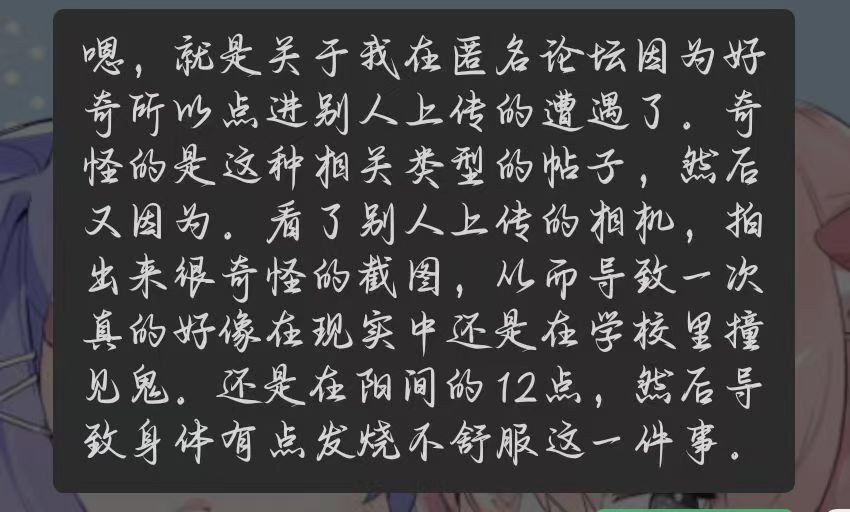 嗯，就是关于我在匿名论坛因为好
奇所以点进别人上传的遭遇了。奇
怪的是这种相关类型的帖子，然后
又因为。看了别人上传的相机，拍
出来很奇怪的截图，从而导致一次
真的好像在现实中还是在学校里撞
见鬼。还是在阳间的12点，然后导
致身体有点发烧不舒服这一件事。